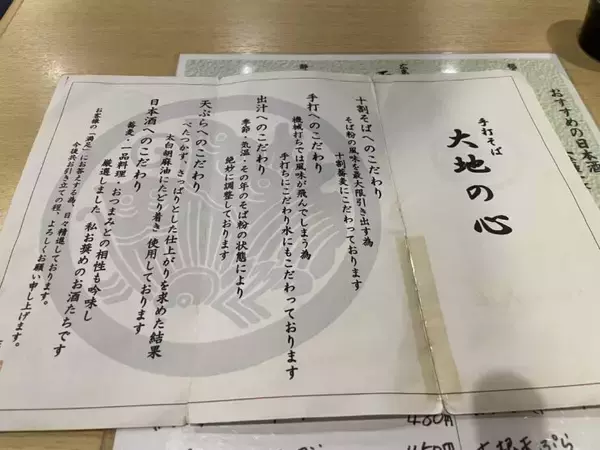 手打そば
大地の心
十割そばへのこだわり
そば粉の風味を最大限引き出す為
十割蕎麦にこだわっております
手打へのこだわり
機械打ちでは風味が飛んでしまう為
手打ちにこだわり水にもこだわっております
出汁へのこだわり
季節・気温・その年のそば粉の状態により
絶妙に調整しております
天ぷらへのこだわり
べたつかず、さっぱりとした仕上がりを求めた結果
太白胡麻油にたどり着き使用しております
日本酒へのこだわり
蕎麦・一品料理・おつまみとの相性も吟味し
厳選しました 私お奨めのお酒たちです
お客様の「満足」にお答えする為、日々精進しております。
今後共お引き立ての程、よろしくお願い申し上げます。
おすすめの日本酒
450円